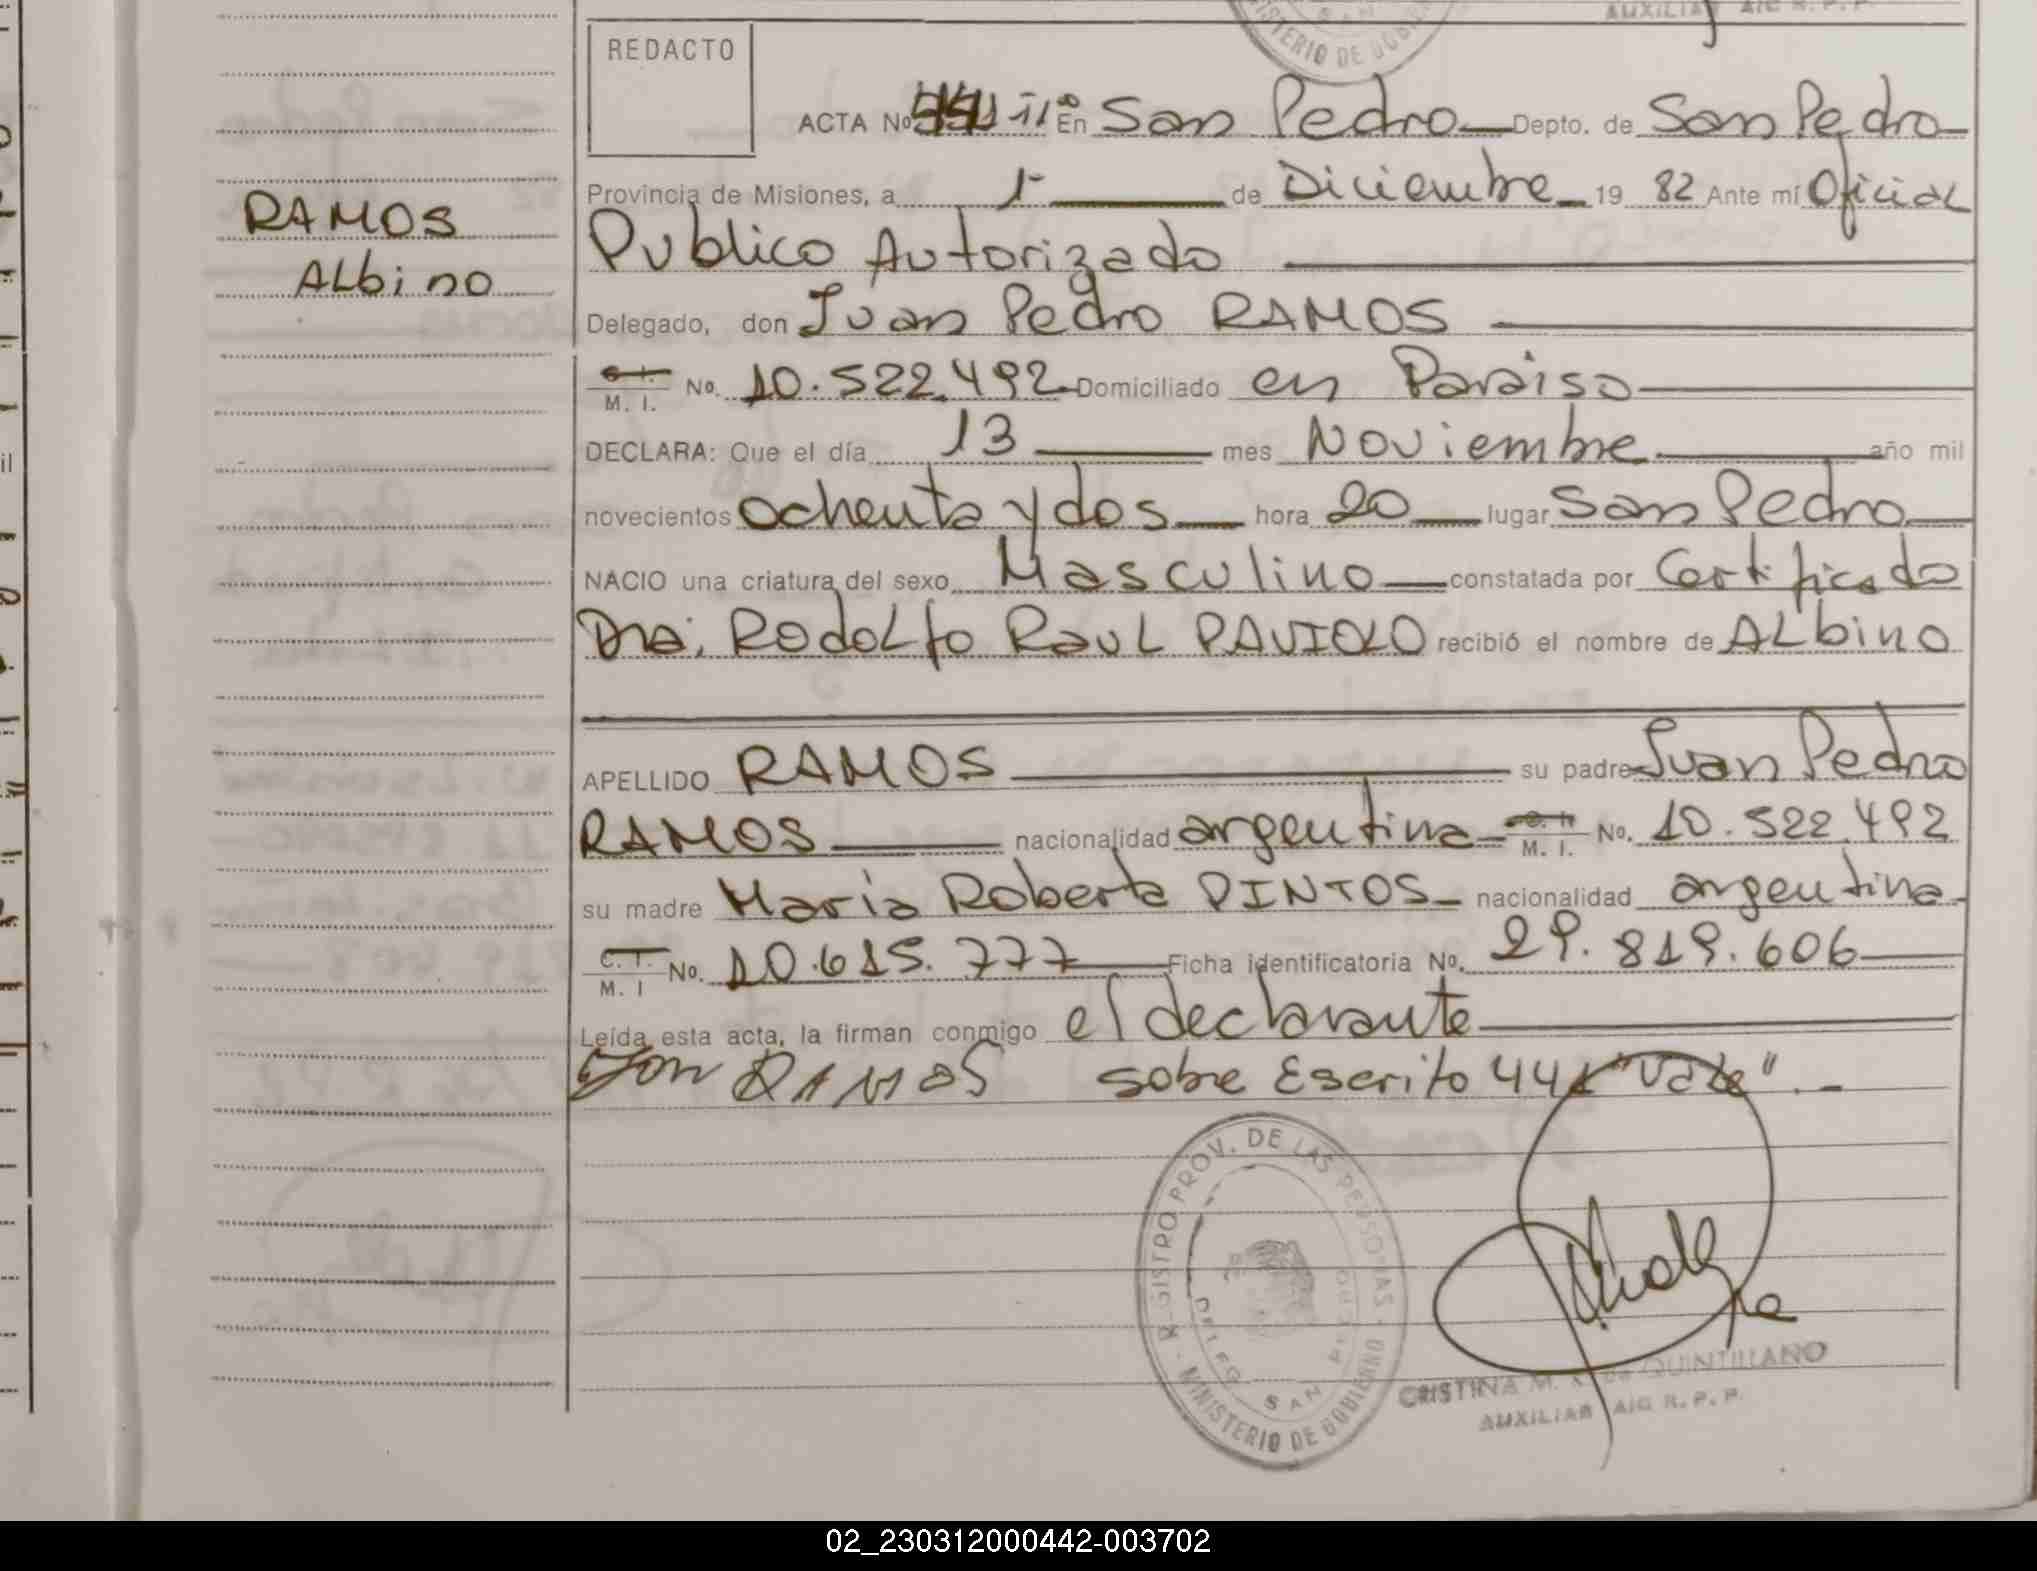 AUXILIAR AIG R.P.P.
MINISTERIO DE GOBIERNO
REDACTO
ACTA No. 441 II° En San Pedro Depto. de San Pedro
Provincia de Misiones, a 1- de Diciembre 19 82 Ante mí Oficial
Publico Autorizado
RAMOS
Albino
Delegado, don Juan Pedro RAMOS
C. I.
M. I. No. 10.522.492 Domiciliado en Paraiso
DECLARA: Que el día 13 mes Noviembre año mil
novecientos ochenta y dos hora 20 lugar San Pedro
NACIO una criatura del sexo Masculino constatada por Certificado
Dra. RodoLfo RauL PAVIOLO recibió el nombre de ALbino
APELLIDO RAMOS su padre Juan Pedro
RAMOS nacionalidad argentina C. I. M. I. No. 10.522.492
su madre Maria Roberta PINTOS nacionalidad argentina
C. I.
M. I No. 10.615.777 Ficha identificatoria No. 29.819.606
Leída esta acta, la firman conmigo el declarante
RAMOS sobre Escrito 441 "Vale".-
REGISTRO PROV. DE LAS PERSONAS - MINISTERIO DE GOBIERNO
DELEG. SAN PEDRO
CRISTINA M. de QUINTILLANO
AUXILIAR AIG R.P.P.
02_230312000442-003702